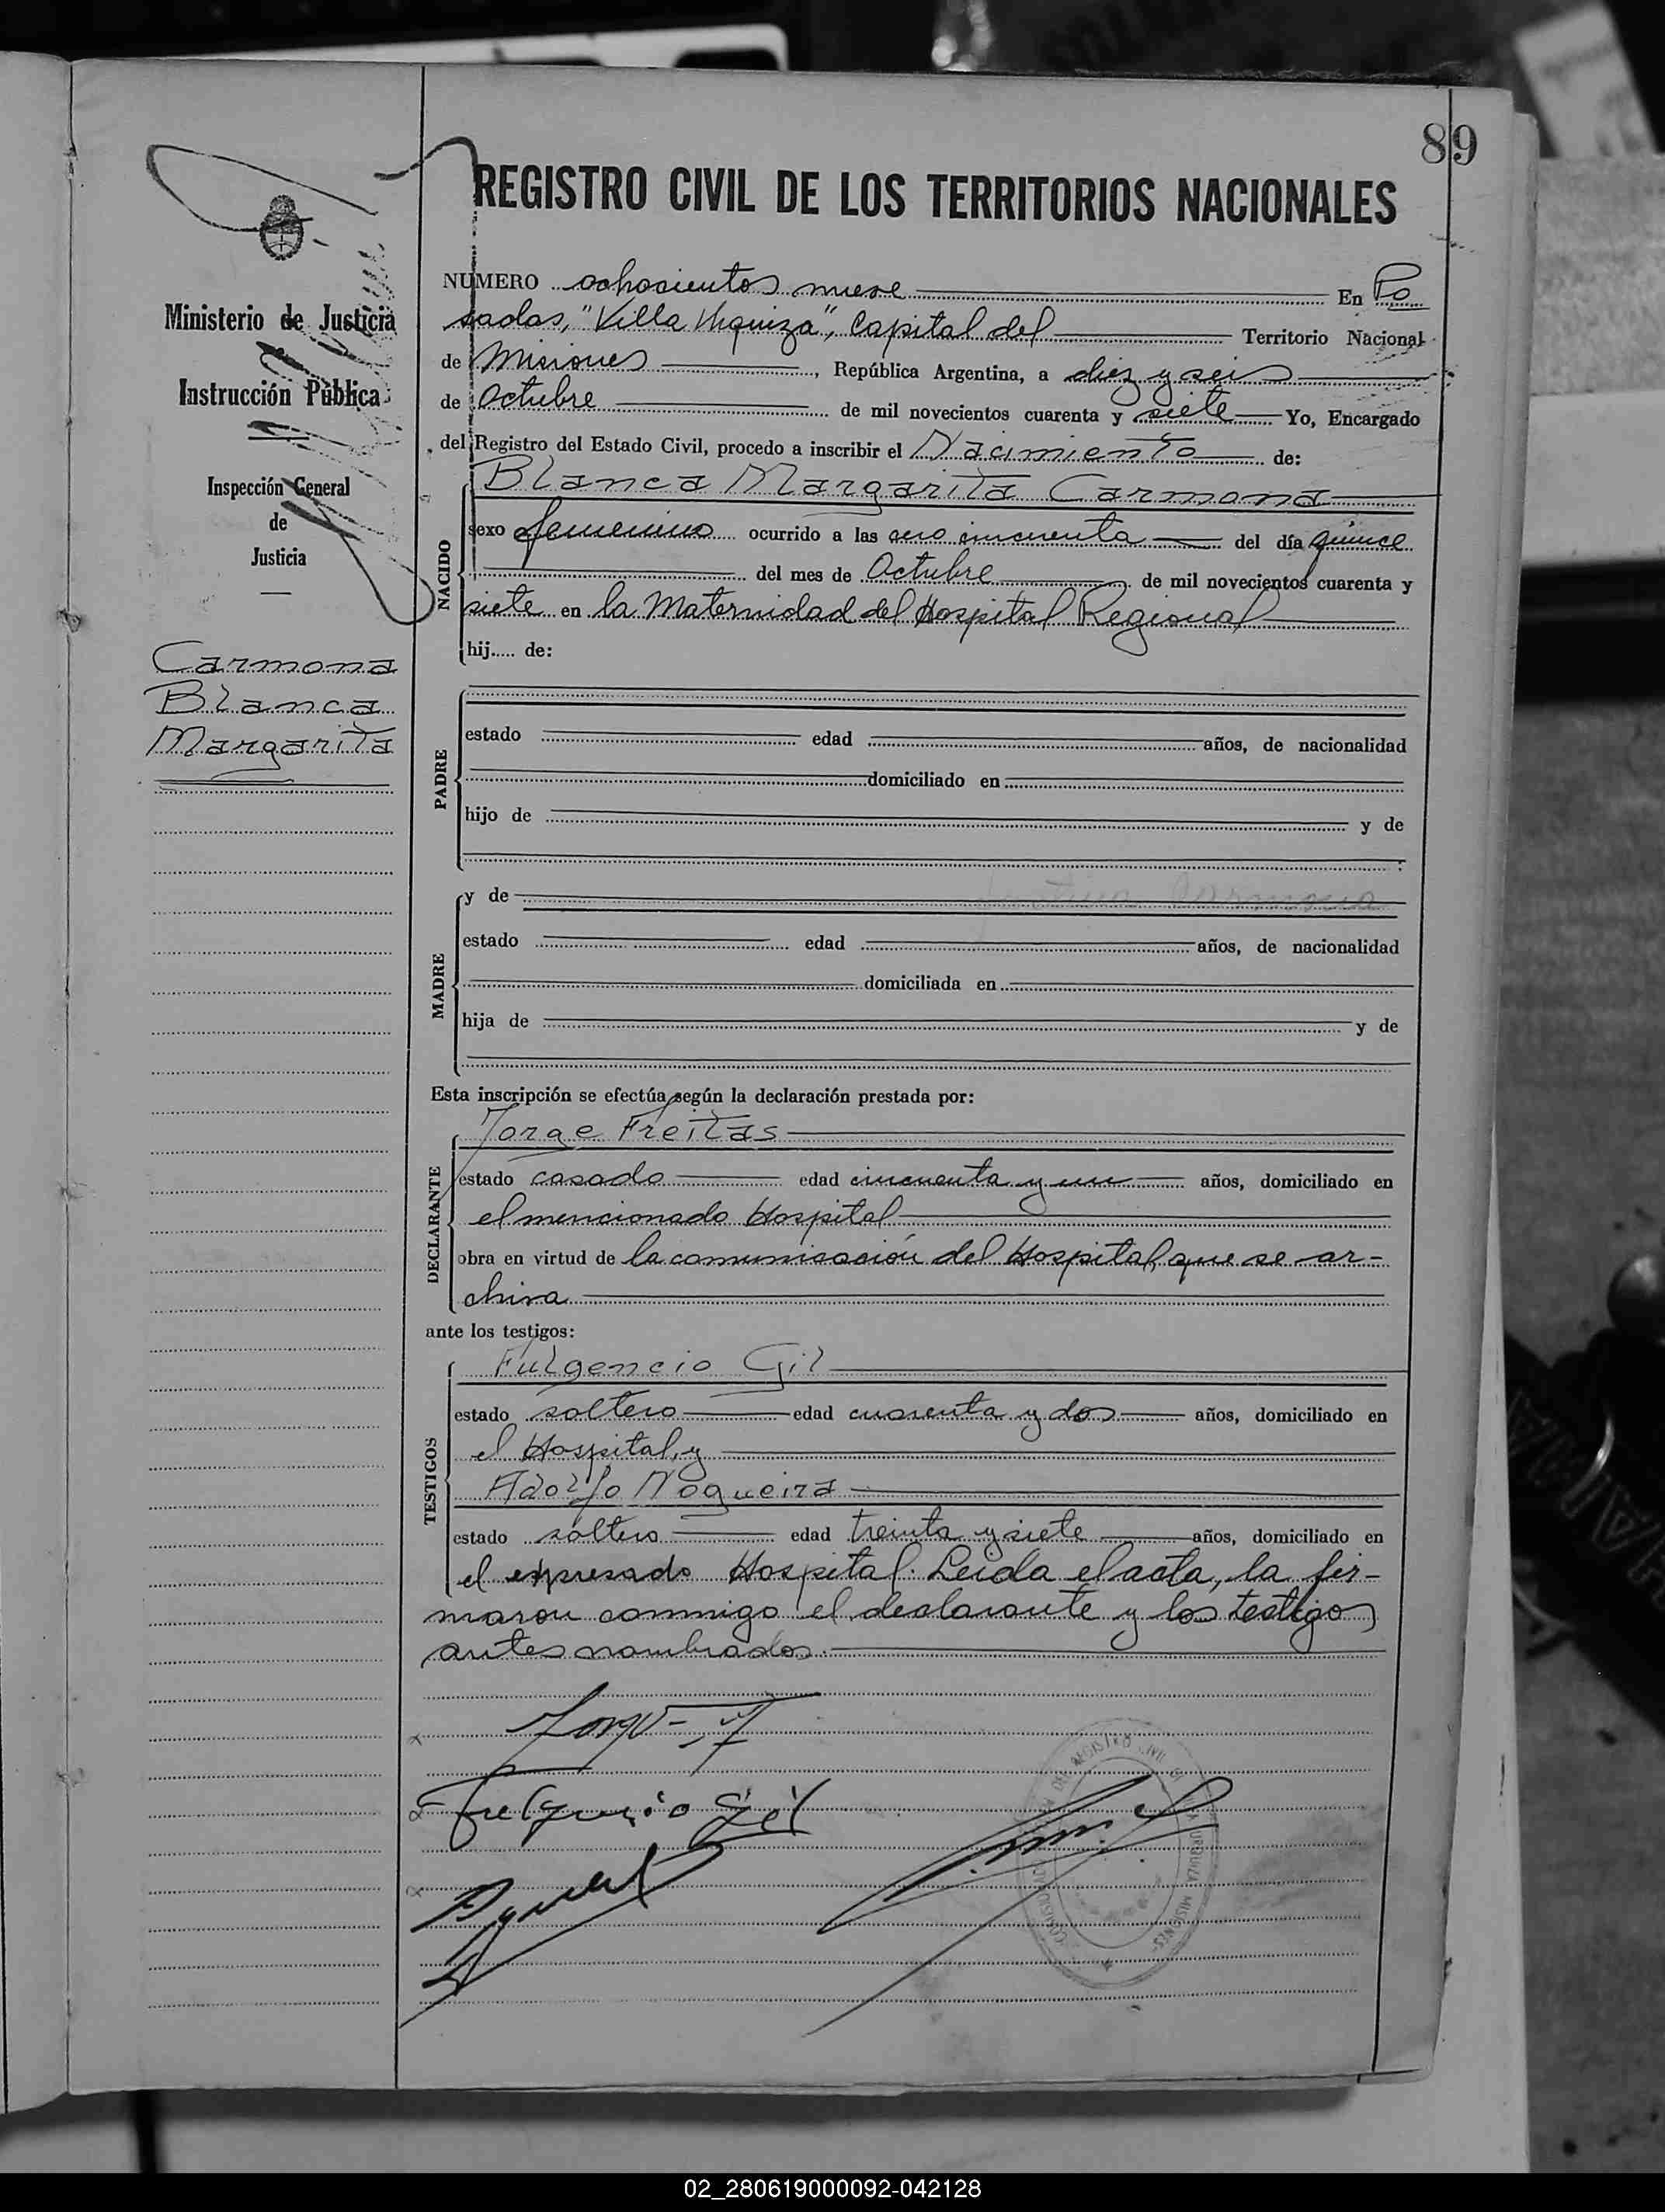 89
REGISTRO CIVIL DE LOS TERRITORIOS NACIONALES
Ministerio de Justicia
Instrucción Pública
Inspección General
de
Justicia
Carmona
Blanca
Margarita
NUMERO ochocientos nueve En Po
sadas, "Villa Urquiza", Capital del Territorio Nacional
de Misiones, República Argentina, a diez y seis
de Octubre de mil novecientos cuarenta y siete Yo, Encargado
del Registro del Estado Civil, procedo a inscribir el Nacimiento de:
Blanca Margarita Carmona
NACIDO
sexo femenino ocurrido a las cero cincuenta del día quince
del mes de Octubre de mil novecientos cuarenta y
siete en la Maternidad del Hospital Regional
hij..... de:
PADRE
estado edad años, de nacionalidad
domiciliado en
hijo de y de
MADRE
y de Carmona
estado edad años, de nacionalidad
domiciliada en
hija de y de
Esta inscripción se efectúa según la declaración prestada por:
DECLARANTE
Jorge Freitas
estado casado edad cincuenta y un años, domiciliado en
el mencionado Hospital
obra en virtud de la comunicación del Hospital, que se ar-
chiva
ante los testigos:
TESTIGOS
Fulgencio Gil
estado soltero edad cuarenta y dos años, domiciliado en
el Hospital, y
Adolfo Nogueira
estado soltero edad treinta y siete años, domiciliado en
el expresado Hospital. Leida el acta, la fir-
maron conmigo el declarante y los testigos
antes nombrados.
Jorge F
Fulgencio Gil
DEL REGISTRO CIVIL URQUIZA MISIONES
02_280619000092-042128